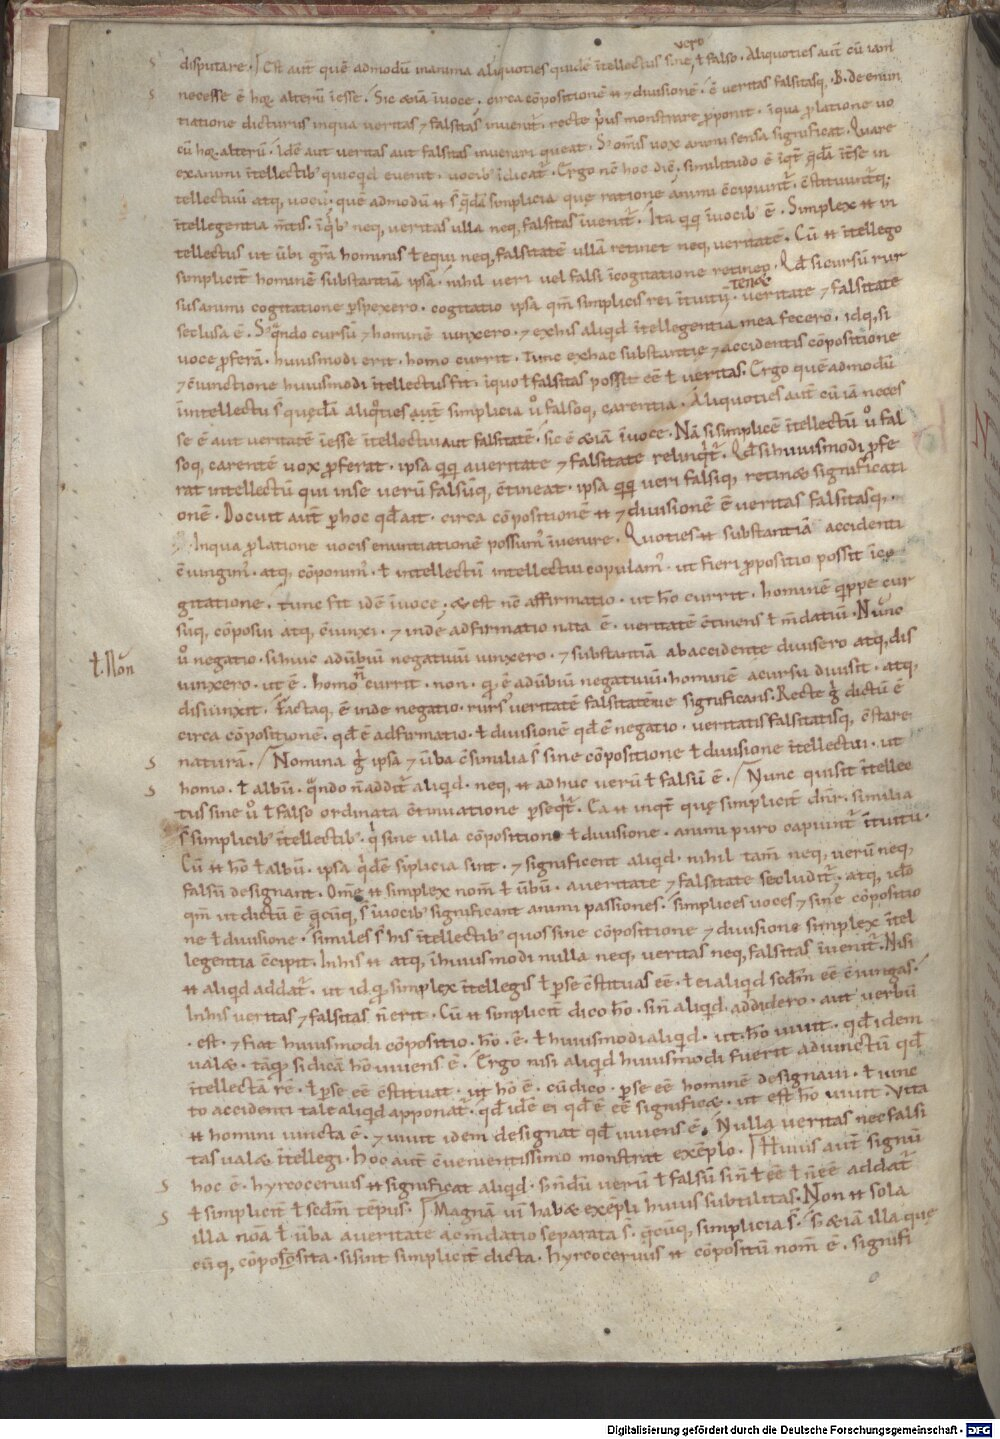 vero
disputare · Est aut̄ quē admodū inanima aliquoties quidē ītellectus sine ł falso · Aliquoties aut̄ cū iam
necesse ē alterū īesse · Sic & iā īvoce · circa cōpositionē & divisionē · ē veritas falsitasq, · B. de enun
tiatione dicturus inqua veritas & falsitas invenit̄ · recte monstrare
cū alterū · Idē aut veritas aut falsitas inveniri queat · omnis vox animi sensa significat · Quare
exanimi ītellectib; quicqid evenit · vocib; īdicat̄ · Ergo hoc dic̄ · similitudo ē
tellectuū atq, vocū · quē admodū simplicia quę ratione animi
itellegentia m̄tis · neq, veritas ulla neq, falsitas īvenit̄ · Ita īvocib; ē · Simplex in
tellectus ut hominis ł equi neq, falsitatē ullā retinet neq, veritatē · Cū ītellego
simplicit̄ hominē substantiā ipsā · nihil veri vel falsi īcogitatione retineo · Qđ si cursū rur
susanimi cogitatione pspexero · cogitatio ipsa qm̄ simplicis rei ītuitū tenet · veritate & falsitate
seclusa ē · cursū & hominē vinxero · & exhis aliqd ītellegentia mea fecero · idq, si
voce pferā · huiusmodi erit · homo currit · Tunc exhac substantię & accidentis cōpositione
& cīunctione huiusmodi ītellectus fit · īquo ł falsitas possit eē ł veritas · Ergo quē admodū
īntellectu s̄ quędā aliqoties aut̄ simplicia falsoq, carentia · Aliquoties aut̄ cū iā neces
se ē aut veritatē īesse ītellectui aut falsitatē · sic ē & iā īvoce · Nā si simplicē ītellectū fal
soq, carentē vox pferat · ipsa qq averitate & falsitate relinqt̄ · Qđ si huiusmodi pfe
rat intellectū qui inse verū falsūq, c̄tineat · ipsa qq veri falsiq, retinet significati
onē · Docuit aut̄ p hoc qđ ait · circa cōpositionē & divisionē ē veritas falsitasq, ·
Inqua platione vocis enuntiationē possum; īvenire · Quoties substantiā accidenti
c̄iungim; · atq, cōponim; · ł intellectū intellectui copulam; · ut fieri ppositio possit īco
gitatione · tunc fit idē īvoce · & est affirmatio · ut hō currit · hominē qippe cur
sūq, cōposui atq, c̄iunxi · & inde adfirmatio nata ē · veritatē c̄tinens ł m̄datiū · Nunc
negatio · si huic adūbiū negativū vinxero · & substantiā abaccidente divisero atq, dis
ł. Non
vinxero · ut ē · homo n̄ currit · non · q; ē adūbiū negativū · hominē acursu divisit · atq,
disiunxit · Factaq, ē inde negatio · rurs; veritatē falsitatēve significans · Recte g dictū ē
circa cōpositionē · qđ ē adfirmatio · ł divisionē qđ ē negatio · veritatis falsitatisq, c̄stare
naturā · Nomina g ipsa & ūba c̄similia s̄ sine cōpositione ł divisione ītellectui · ut
homo · ł albū · qndo n̄ addit̄ aliqd · neq, adhuc verū ł falsū ē · Nunc quisit ītellec
tus sine ł falso ordinata c̄tinuatione pseqt̄ · Ea inqt̄ quę simplicit̄ dn̄r · similia
s̄ simplicib; ītellectib; · q sine ulla cōpositione ł divisione · animi puro capiunt̄ ītuitu ·
Cū hō ł albū · ipsa qdē siplicia sint · & significent aliqd · nihil tam̄ neq, verū neq,
falsū designant · Om̄e simplex nom̄ ł ūbū · averitate & falsitate secludit̄ · atq, idō
qm̄ ut dictū ē qcūq, s̄ īvocib; significant animi passiones · simplices voces & sine cōpositio
ne ł divisione · similes s̄ his ītellectib; quos sine cōpositione & divisione simplex ītel
legentia c̄cipit · Inhis atq, īhuiusmodi nulla neq, veritas neq, falsitas īvenit̄ · Nisi
aliqd addat̄ · ut id q; simplex ītellegis ł pse c̄stituas eē · ł ei aliqid sedm eē c̄iungas ·
Inhis veritas & falsitas n̄ erit · Cū simplicit̄ dico hō · sin̄ aliqid addidero · aut verbū
· est · & fiat huiusmodi cōpositio · hō · ē · ł huiusmodi aliqid · ut · hō vivit · qđ idem
valet · tāq; si dicā hō vivens ē · Ergo nisi aliqd huiusmodi fuerit adiunctū qđ
ītellectā rē · ł pse eē c̄stituat · ut hō ē · cū dico · pse eē hominē designavi · ł iunc
to accidenti tale aliqid apponat · qđ idē ei qđ ē eē significet · ut est hō vivit · Vita
homini iuncta ē · & vivit idem designat qđ vivens ē · Nulla veritas nec falsi
tas valet ītellegi · Hoc aut̄ c̄venientissimo monstrat exēplo · Huius aut̄ signū
hoc ē · hyrcocervus significat aliqid · verū ł falsū ł eē ł n̄ eē addat̄
ł simplicit̄ ł sedm tēpus · Magnā vim habet exēpli huius subtilitas · Non sola
illa nōa ł ūba averitate ac m̄datio separata s̄ · qcūq, simplicia s̄ · & iā illa quę
cūq, cōposita · si sint simplicit̄ dicta · hyrcocervus cōpositū nom̄ ē · signifi
Digitalisierung gefördert durch die Deutsche Forschungsgemeinschaft - DFG